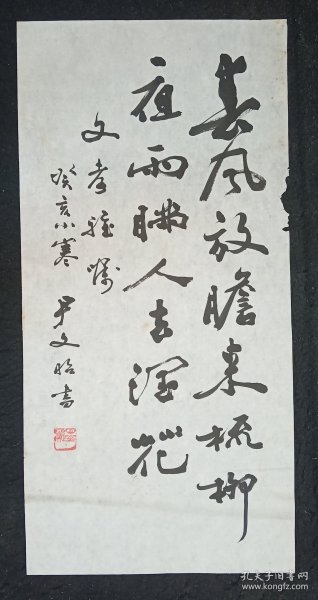 春风放胆来梳柳
夜雨瞒人去润花
文孝雅嘱
癸亥小寒 尹文昭书
孔夫子旧书网
www.kongfz.com